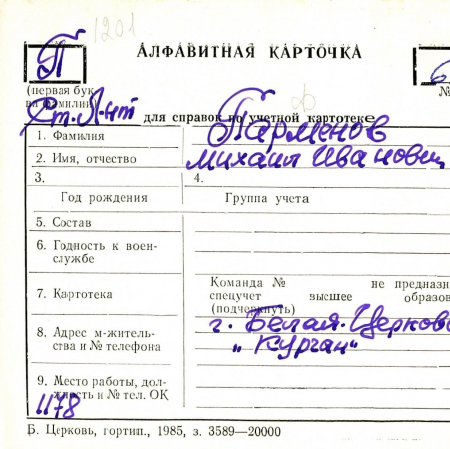 1201
АЛФАВИТНАЯ КАРТОЧКА
П
(первая бук-
ва фамилии)
Ст. Л-нт
для справок по учетной картотеке
№
1. Фамилия Парменов
2. Имя, отчество Михаил Иванович
3. 4.
Год рождения Группа учета
5. Состав
6. Годность к воен-
службе
7. Картотека
Команда № не предназн
спецучет высшее образов
(подчеркнуть)
8. Адрес м-житель-
ства и № телефона
г. Белая-Церковь
„Курган"
9. Место работы, дол-
жность и № тел. ОК
1178
Б. Церковь, гортип., 1985, з. 3589—20000